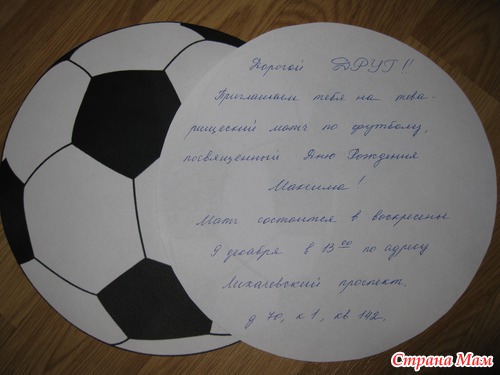 Дорогой ДРУГ!!
Приглашаем тебя на това-
рищеский матч по футболу,
посвященный Дню Рождения
Максима!
Матч состоится в воскресенье
9 декабря в 13 00 по адресу
Лихачевский проспект.
д 70, к 1, кв 142.
Страна Мам